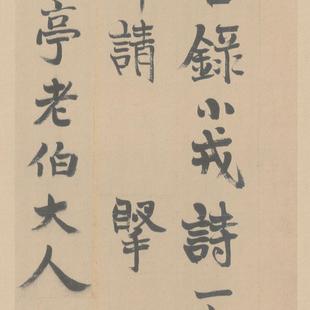 錄小戎詩一
請
亭老伯大人